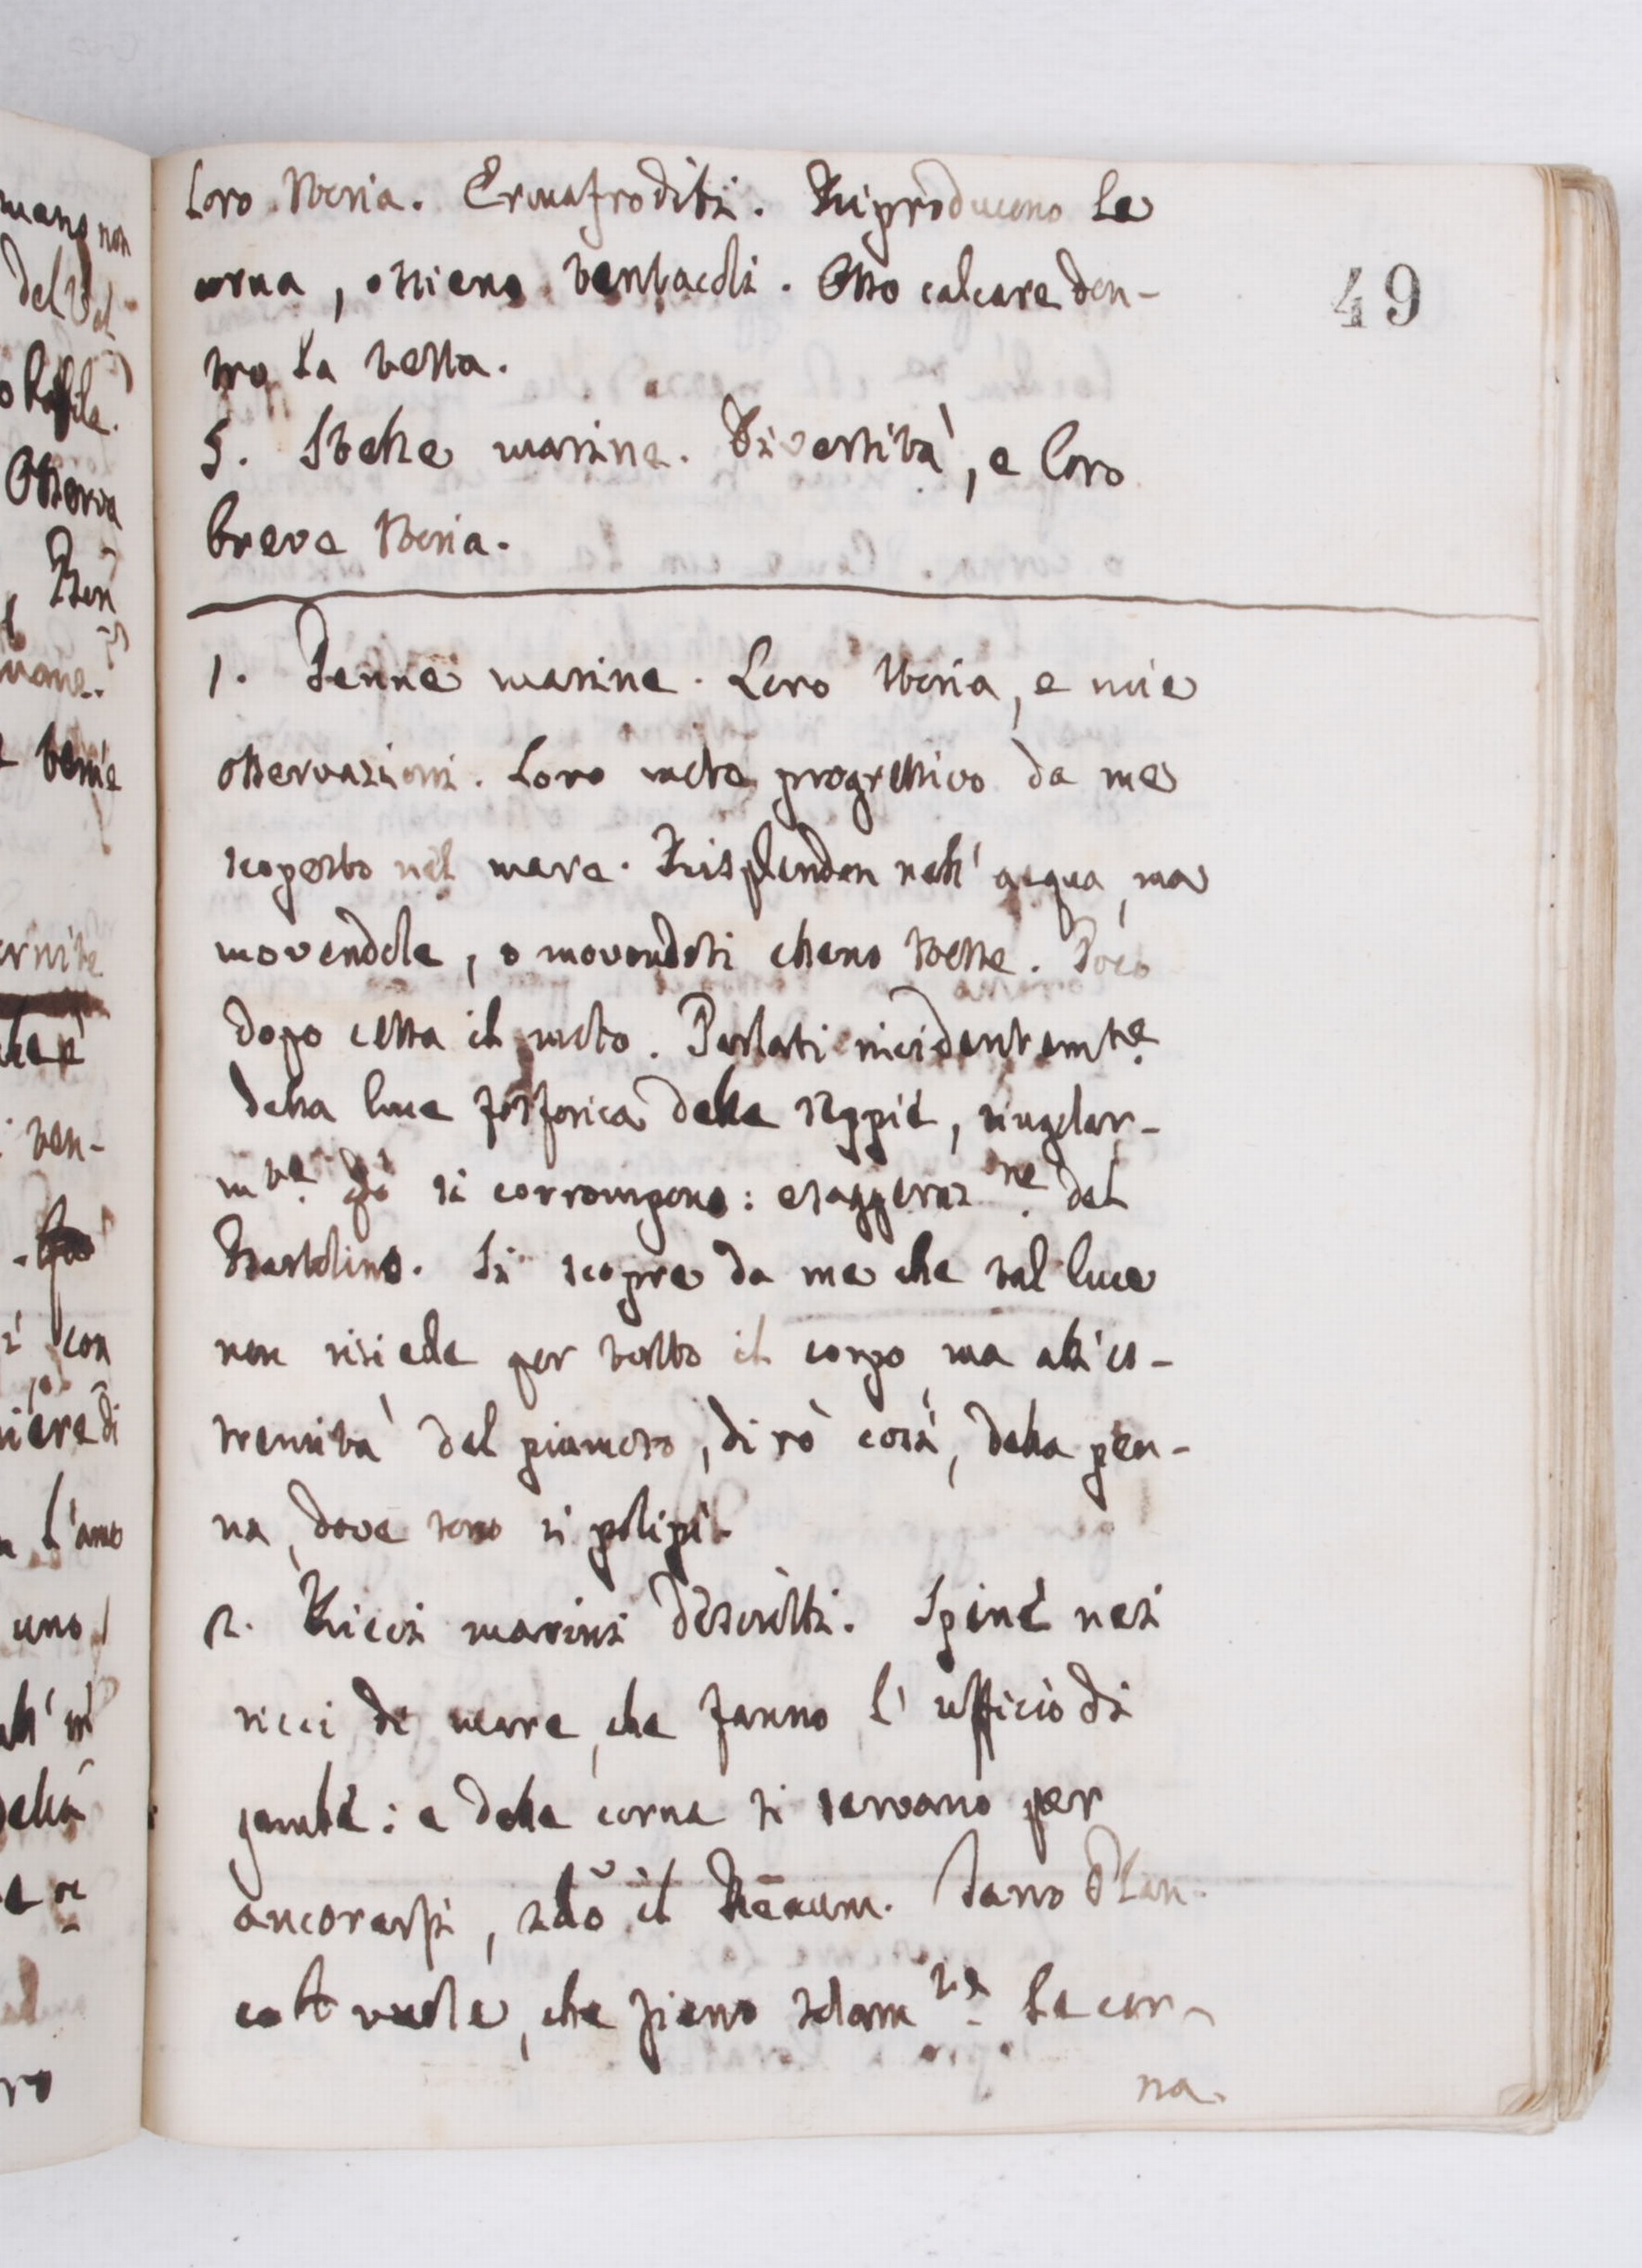 Loro storia. Ermafroditi. Riproducono le
corna, ossieno tentacoli. Osso calcare den-
tro la testa.
5. Stelle marine. Diversità, e loro
breve storia.
49
1. Penne marine. Loro storia, e mie
osservazioni. Loro moto progressivo da me
scoperto nel mare. Risplendon nell' acqua, ma
movendole, o movendosi elleno stesse. Poco
dopo cessa il moto. Parlasi incidentemte.
della luce fosforica delle seppie, singolar-
mte. qdo si corrompono: esagerazne. del
Bartolino. Si scopre da me che tal luce
non risiede per tutto il corpo, ma all' es-
tremità del piumoso, dirò così, della pen-
na, dove sono i polipi.
2. Ricci marini descritti. Spine nei
ricci di mare, che fanno l' ufficio di
gambe: e delle corna si servano per
ancorarsi, sdo il Reaum. Jano Plan-
co vuole, che sieno solamte. le cor-
na.
mano non
del Vol
Osserva
ven-
con
niere di
uno